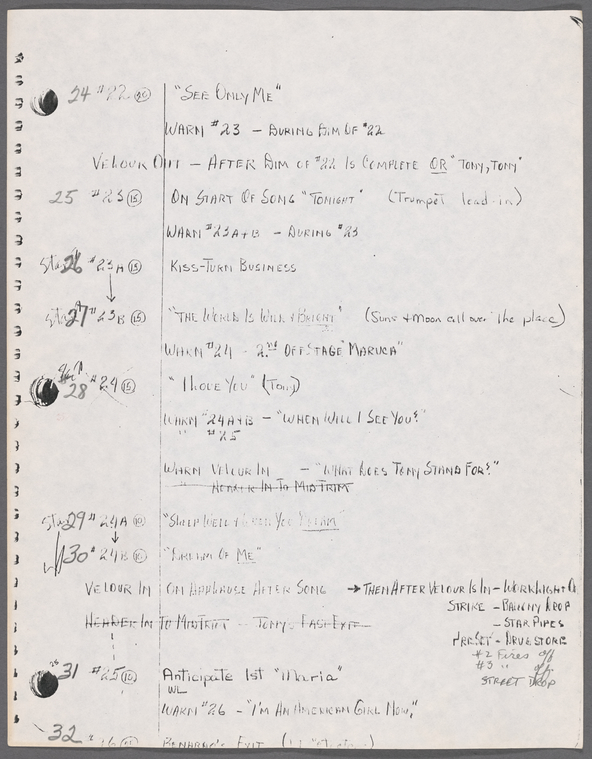 24 #22 (20) "SEE ONLY ME"
WARN #23 - DURING DIM OF #22
VELOUR OUT - AFTER DIM OF #22 IS COMPLETE OR "TONY, TONY"
25 #23 (15) ON START OF SONG "TONIGHT" (Trumpet lead-in)
WARN #23A+B - DURING #23
26 #23A (15) KISS-TURN BUSINESS
27 #23B (15) "THE WORLD IS WILD + BRIGHT" (Suns + Moon all over the place)
WARN #24 - 2nd OFFSTAGE "MARUCA"
28 #24 (15) "I LOVE YOU" (Tony)
WARN #24A+B - "WHEN WILL I SEE YOU?"
" #25
WARN VELOUR IN - "WHAT DOES TONY STAND FOR?"
" HEADER IN TO MIDTRIM
29 #24A (10) "SLEEP WELL + WHEN YOU DREAM"
30 #24B (10) "DREAM OF ME"
VELOUR IN ON APPLAUSE AFTER SONG → THEN AFTER VELOUR IS IN - WORKLIGHT
STRIKE - BALCONY DROP
HEADER IN TO MIDTRIM - TONY'S FAST EXIT
- STAR PIPES
PRESET - DRUGSTORE
#2 off
#3 " off
STREET DROP
31 #25 (10) Anticipate 1st "Maria"
WL
WARN #26 - "I'M AN AMERICAN GIRL NOW."
32 BERNARDO'S EXIT